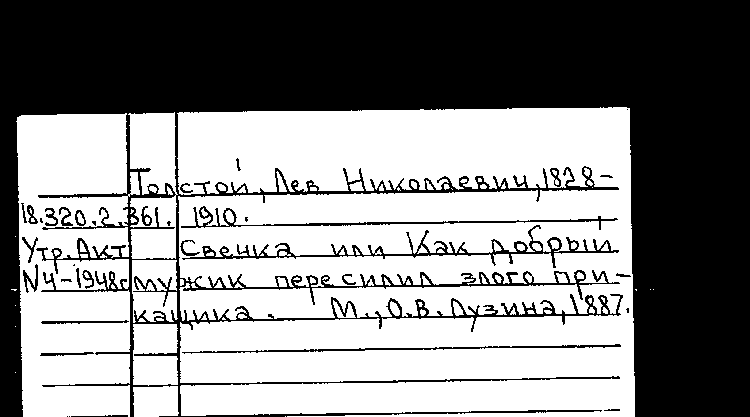 Толстой, Лев Николаевич, 1828-
18.320.2.361. 1910.
Утр. Акт Свечка или Как добрый
N4-1948г мужик пересилил злого при-
кащика. М., О.В. Лузина, 1887.